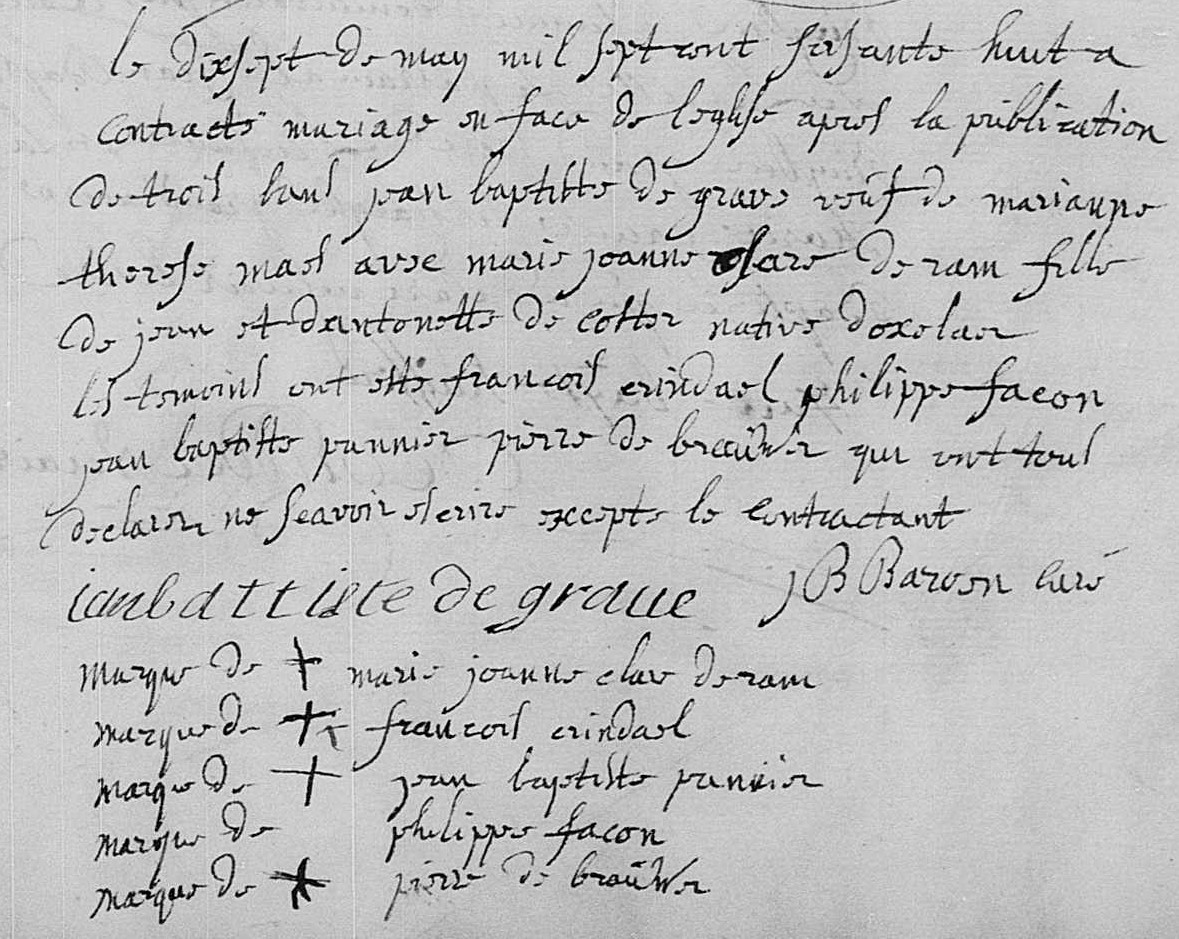 le dixsept de may mil sept cent soisante huit a
contracte mariage en face de leglise apres la publication
de trois bans jean baptiste de grave veuf de marianne
therese maes avec marie joanne clare de ram fille
de jean et dantonette de coster native doxelaer
les temoins ont este francois crindael philippe facon
jean baptiste pannier pierre de brauwer qui ont tous
declarer ne scavoir escrire excepte le contractant
ianbattiste de graue JB Baroen curé
marque de + marie joanne clare de ram
marque de + francois crindael
marque de + jean baptiste pannier
marque de philippe facon
marque de + pierre de brauwer